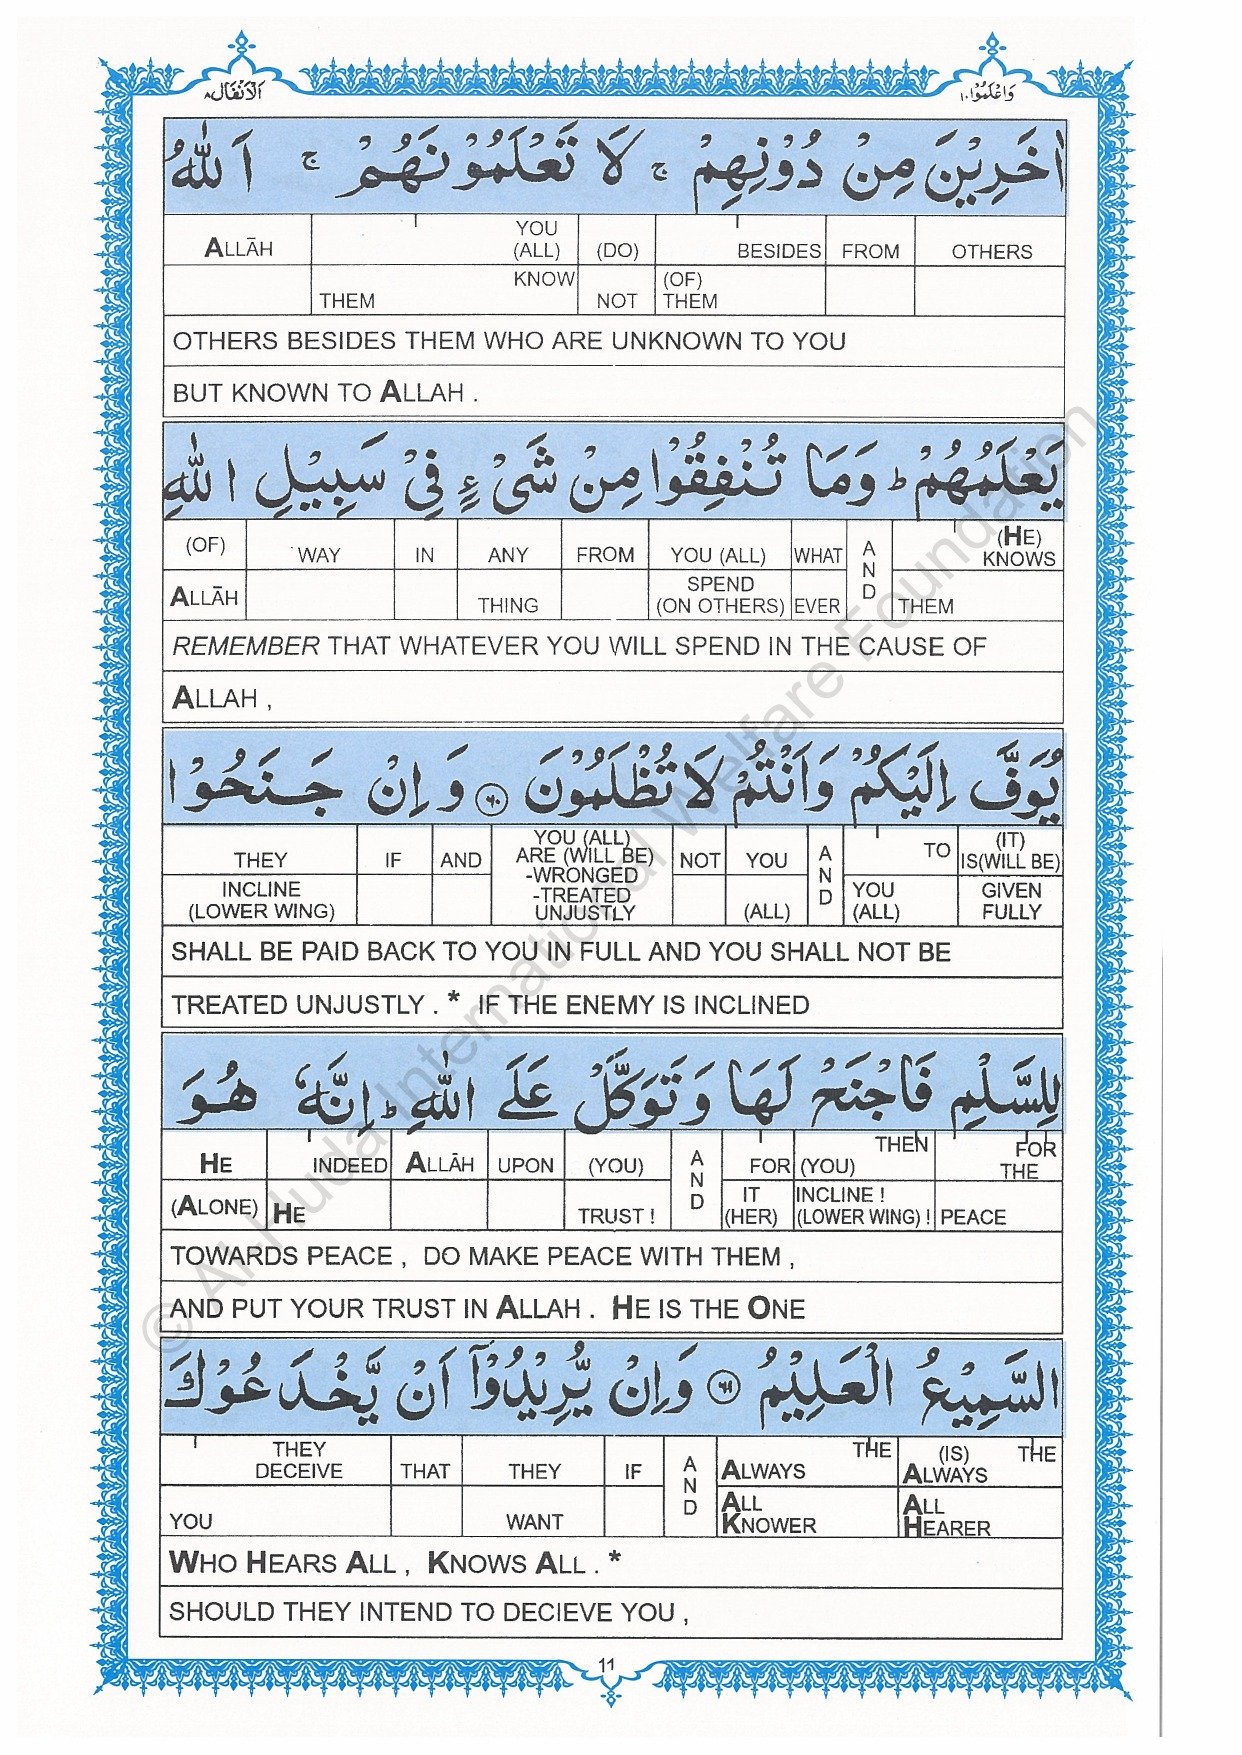 اَلْاَنْفَال ٨
وَاعْلَمُوْا ١٠
اٰخَرِيْنَ مِنْ دُوْنِهِمْ ۚ لَا تَعْلَمُوْنَهُمْ ۚ اَللّٰهُ
ALLĀH YOU (ALL) (DO) BESIDES FROM OTHERS
KNOW THEM NOT (OF) THEM
OTHERS BESIDES THEM WHO ARE UNKNOWN TO YOU
BUT KNOWN TO ALLAH .
يَعْلَمُهُمْ ؕ وَمَا تُنْفِقُوْا مِنْ شَیْءٍ فِیْ سَبِيْلِ اللّٰهِ
(OF) WAY IN ANY FROM YOU (ALL) WHAT AND (HE) KNOWS
ALLĀH THING SPEND (ON OTHERS) EVER THEM
REMEMBER THAT WHATEVER YOU WILL SPEND IN THE CAUSE OF
ALLAH ,
يُوَفَّ اِلَيْكُمْ وَاَنْتُمْ لَا تُظْلَمُوْنَ ۶۰ وَ اِنْ جَنَحُوْا
THEY IF AND YOU (ALL) ARE (WILL BE) -WRONGED -TREATED UNJUSTLY NOT YOU AND TO (IT) IS(WILL BE)
INCLINE (LOWER WING) (ALL) YOU (ALL) GIVEN FULLY
SHALL BE PAID BACK TO YOU IN FULL AND YOU SHALL NOT BE
TREATED UNJUSTLY . * IF THE ENEMY IS INCLINED
لِلسَّلْمِ فَاجْنَحْ لَهَا وَ تَوَكَّلْ عَلَى اللّٰهِ ؕ اِنَّهٗ هُوَ
HE INDEED ALLĀH UPON (YOU) AND FOR THEN (YOU) FOR THE
(ALONE) HE TRUST ! IT (HER) INCLINE ! (LOWER WING) ! PEACE
TOWARDS PEACE , DO MAKE PEACE WITH THEM ,
AND PUT YOUR TRUST IN ALLAH . HE IS THE ONE
السَّمِيْعُ الْعَلِيْمُ ۶۱ وَاِنْ يُّرِيْدُوْۤا اَنْ يَّخْدَعُوْكَ
THEY DECEIVE THAT THEY IF AND THE ALWAYS (IS) THE ALWAYS
YOU WANT ALL KNOWER ALL HEARER
WHO HEARS ALL , KNOWS ALL . *
SHOULD THEY INTEND TO DECIEVE YOU ,
11
© Al-Huda International Welfare Foundation